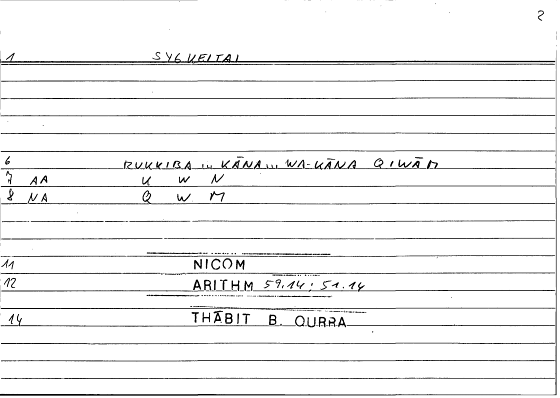 2
1 SYGKEITAI
6 RUKKIBA ... KĀNA ... WA-KĀNA QIWĀM
7 AA K W N
8 NA Q W M
11 NICOM
12 ARITHM 59.14 : 51.14
14 THĀBIT B. QURRA